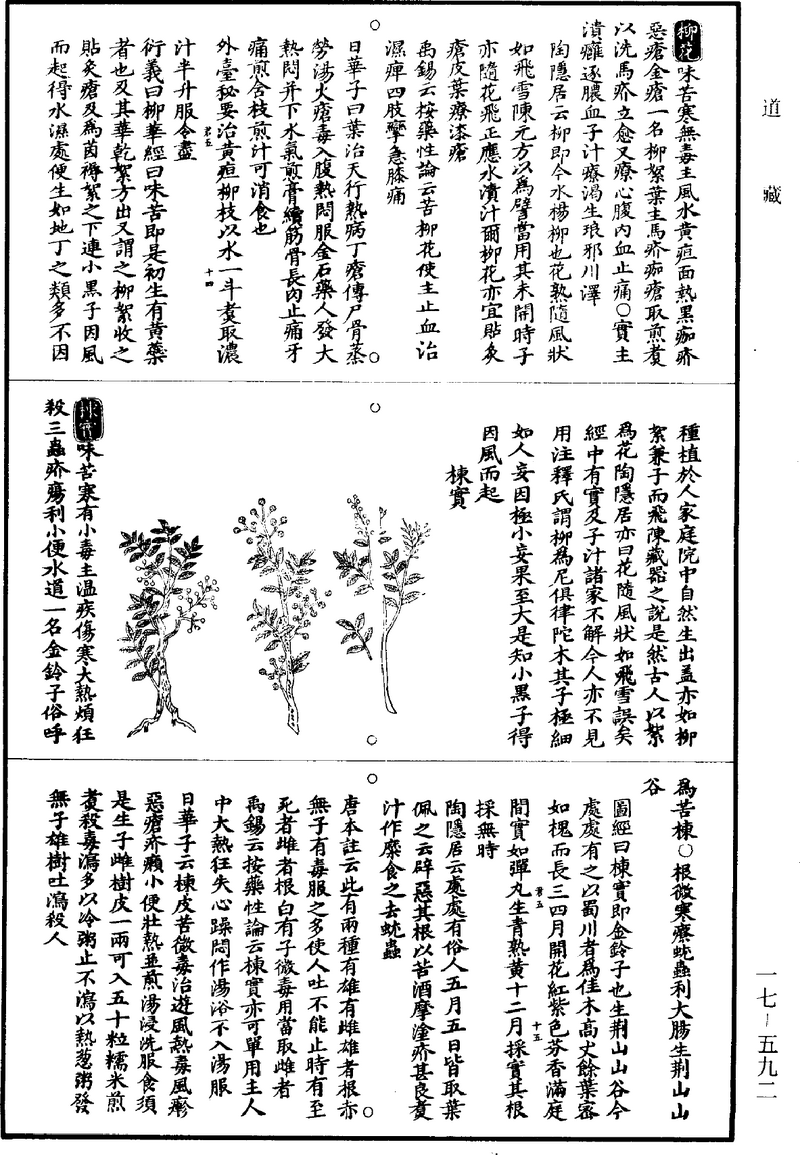 道藏
柳花味苦寒無毒主風水黃疸面熱黑痂疥
惡瘡金瘡一名柳絮葉主馬疥痂瘡取煎煑
以洗馬疥立愈又療心腹內血止痛○實主
潰癰逐膿血子汁療渴生琅邪川澤
陶隱居云柳即今水楊柳也花熟隨風狀
如飛雪陳元方以爲譬當用其未開時子
亦隨花飛正應水漬汁爾柳花亦宜貼灸
瘡皮葉療漆瘡
禹錫云按藥性論云苦柳花使主止血治
濕痺四肢攣急膝痛
日華子曰葉治天行熱病丁瘡傳尸骨蒸
勞湯火瘡毒入腹熱悶服金石藥人發大
熱悶并下水氣煎膏續筋骨長肉止痛牙
痛煎含枝煎汁可消食也
外臺秘要治黃疸柳枝以水一斗煑取濃
汁半升服令盡
君五
十四
衍義曰柳華經曰味苦即是初生有黃蘂
者也及其華乾絮方出又謂之柳絮收之
貼灸瘡及爲茵褥絮之下連小黑子因風
而起得水濕處便生如地丁之類多不因
種植於人家庭院中自然生出蓋亦如柳
絮兼子而飛陳藏器之說是然古人以絮
爲花陶隱居亦曰花隨風狀如飛雪誤矣
經中有實及子汁諸家不解今人亦不見
用注釋氏謂柳爲尼俱律陀木其子極細
如人妄因極小妄果至大是知小黑子得
因風而起
楝實
楝實味苦寒有小毒主温疾傷寒大熱煩狂
殺三蟲疥瘍利小便水道一名金鈴子俗呼
爲苦楝○根微寒療蚘蟲利大腸生荆山山
谷
圖經曰楝實即金鈴子也生荆山山谷今
處處有之以蜀川者爲佳木高丈餘葉密
如槐而長三四月開花紅紫色芬香滿庭
君五
十五
間實如彈丸生青熟黃十二月採實其根
採無時
陶隱居云處處有俗人五月五日皆取葉
佩之云辟惡其根以苦酒摩塗疥甚良煑
汁作糜食之去蚘蟲
唐本註云此有兩種有雄有雌雄者根赤
無子有毒服之多使人吐不能止時有至
死者雌者根白有子微毒用當取雌者
禹錫云按藥性論云楝實亦可單用主人
中大熱狂失心躁悶作湯浴不入湯服
日華子云楝皮苦微毒治遊風熱毒風㾦
惡瘡疥癩小便壯熱並煎湯浸洗服食須
是生子雌樹皮一兩可入五十粒糯米煎
煑殺毒瀉多以冷粥止不瀉以熱葱粥發
無子雄樹吐瀉殺人
一七-五九二